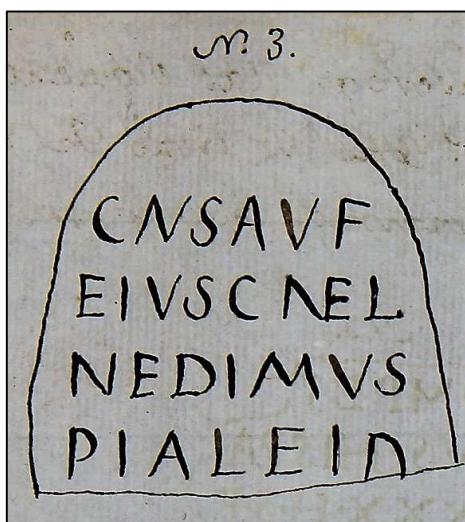 N. 3.
CNSAVF
EIVSCNEL
NEDIMVS
PIALEIn